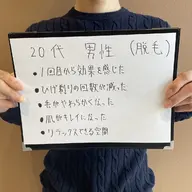 20代 男性 (脱毛)
• 1回目から効果を感じた
• ひげ剃りの回数が減った
• 毛がやわらかくなった
• 肌がキレイになった
• リラックスできる空間